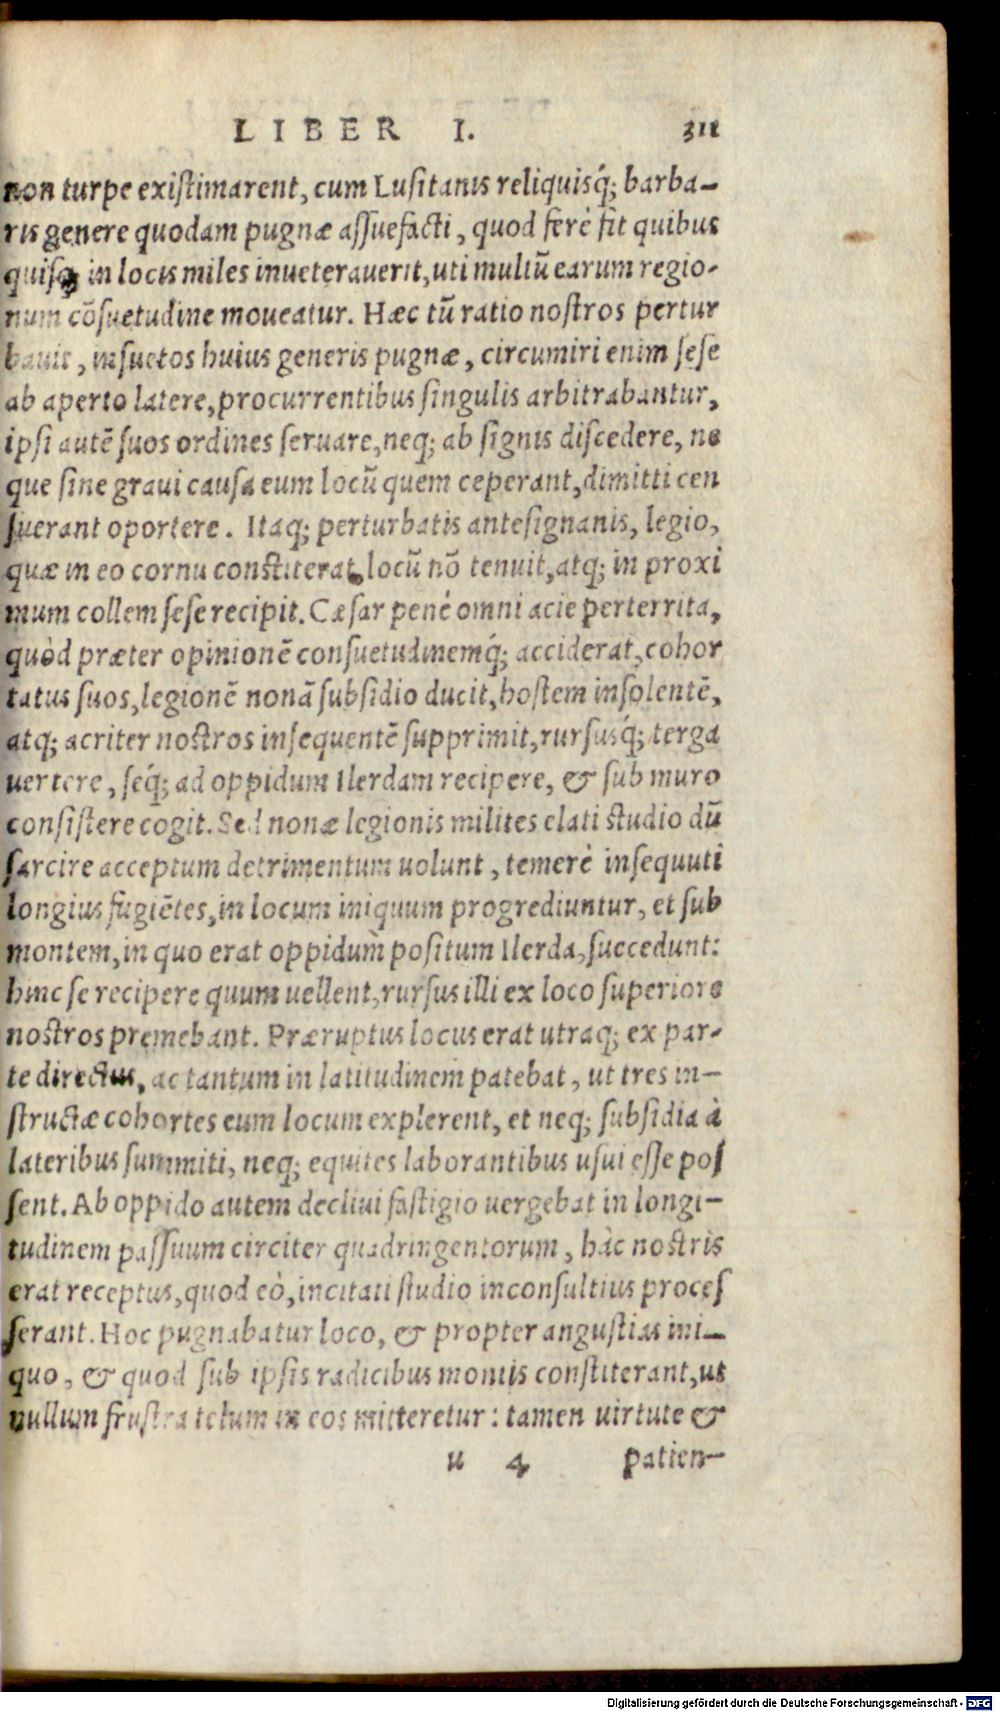 LIBER I. 311
non turpe existimarent, cum Lusitanis reliquisq́; barba-
ris genere quodam pugnæ assuefacti, quod ferè fit quibus
quisq; in locis miles inueterauerit, uti multũ earum regio-
num cõsuetudine moueatur. Hæc tũ ratio nostros pertur
bauit, insuetos huius generis pugnæ, circumiri enim sese
ab aperto latere, procurrentibus singulis arbitrabantur,
ipsi autẽ suos ordines seruare, neq; ab signis discedere, ne
que sine graui causa eum locũ quem ceperant, dimitti cen
suerant oportere. Itaq; perturbatis antesignanis, legio,
quæ in eo cornu constiterat, locũ nõ tenuit, atq; in proxi
mum collem sese recipit. Cæsar penè omni acie perterrita,
quòd præter opinionẽ consuetudinemq́; acciderat, cohor
tatus suos, legionẽ nonã subsidio ducit, hostem insolentẽ,
atq; acriter nostros insequentẽ supprimit, rursusq́; terga
uertere, seq́; ad oppidum Ilerdam recipere, & sub muro
consistere cogit. Sed nonæ legionis milites elati studio dũ
sarcire acceptum detrimentum uolunt, temerè insequuti
longius fugiẽtes, in locum iniquum progrediuntur, et sub
montem, in quo erat oppidum positum Ilerda, succedunt:
hinc se recipere quum uellent, rursus illi ex loco superiore
nostros premebant. Præruptus locus erat utraq; ex par-
te directus, ac tantum in latitudinem patebat, ut tres in-
structæ cohortes eum locum explerent, et neq; subsidia à
lateribus summiti, neq; equites laborantibus usui esse pos
sent. Ab oppido autem decliui fastigio uergebat in longi-
tudinem passuum circiter quadringentorum, hàc nostris
erat receptus, quod eò, incitati studio inconsultius proces
serant. Hoc pugnabatur loco, & propter angustias ini-
quo, & quod sub ipsis radicibus montis constiterant, ut
nullum frustra telum in eos mitteretur: tamen uirtute &
u 4 patien-
Digitalisierung gefördert durch die Deutsche Forschungsgemeinschaft - DFG